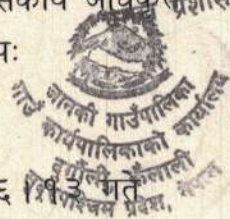 यः
जानकी गाउँपालिका
गाउँ कार्यपालिकाको कार्यालय
दुर्गौली, कैलाली
सुदूरपश्चिम प्रदेश, नेपाल
६।१३ गते